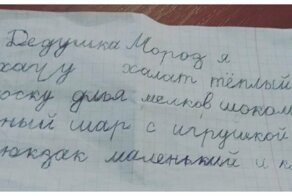 Дедушка Мород я
хачу халат тёплый
доску длья мелков шоком
ный шар с игрушкой
юкзак маленький и к